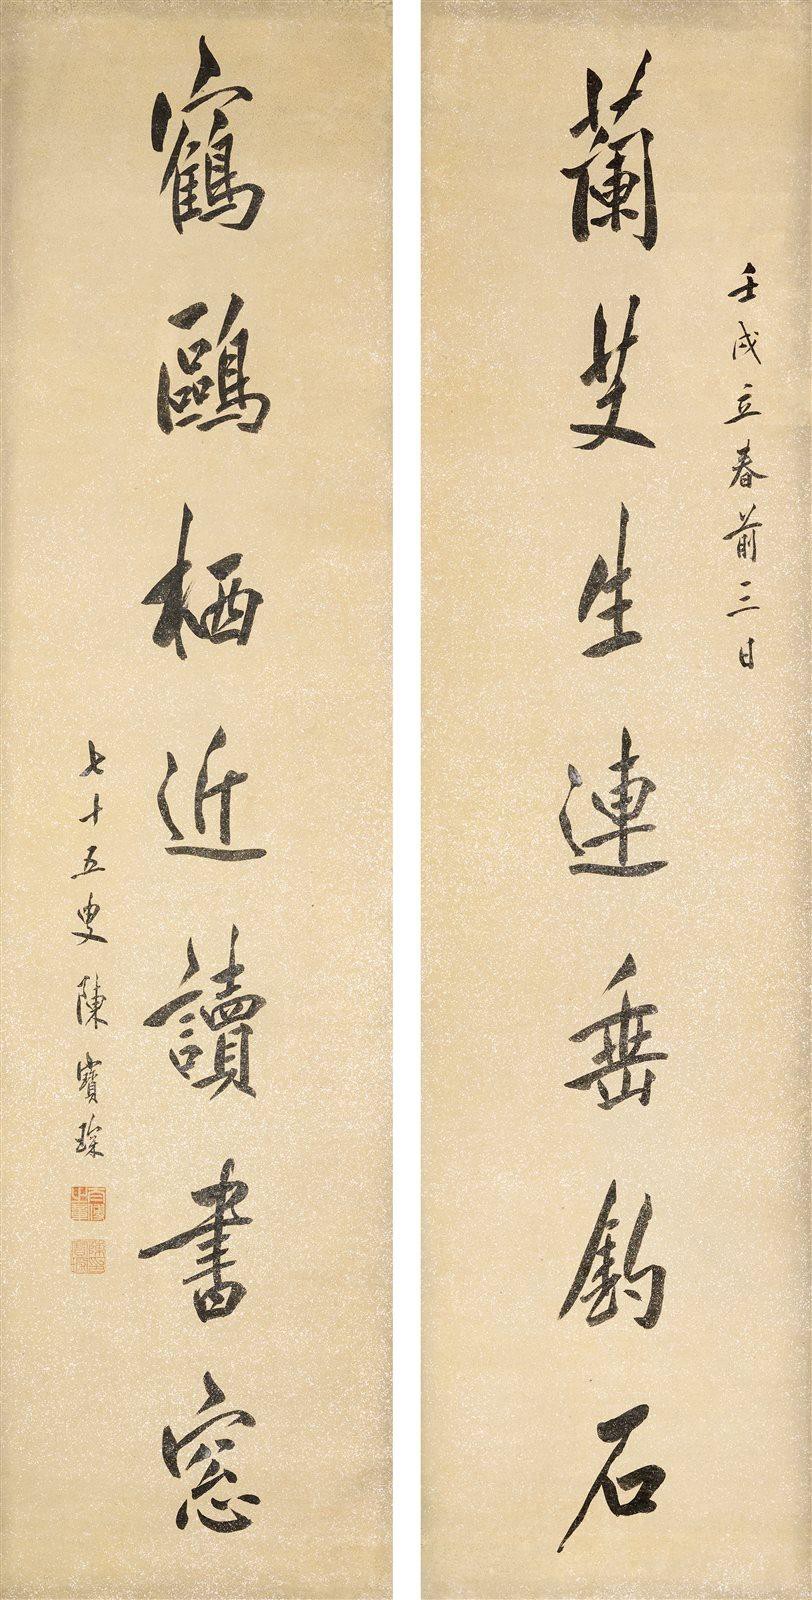 壬戌立春前三日
蘭芆生連垂釣石
鶴鷗栖近讀書窓
七十五叟陳寶琛